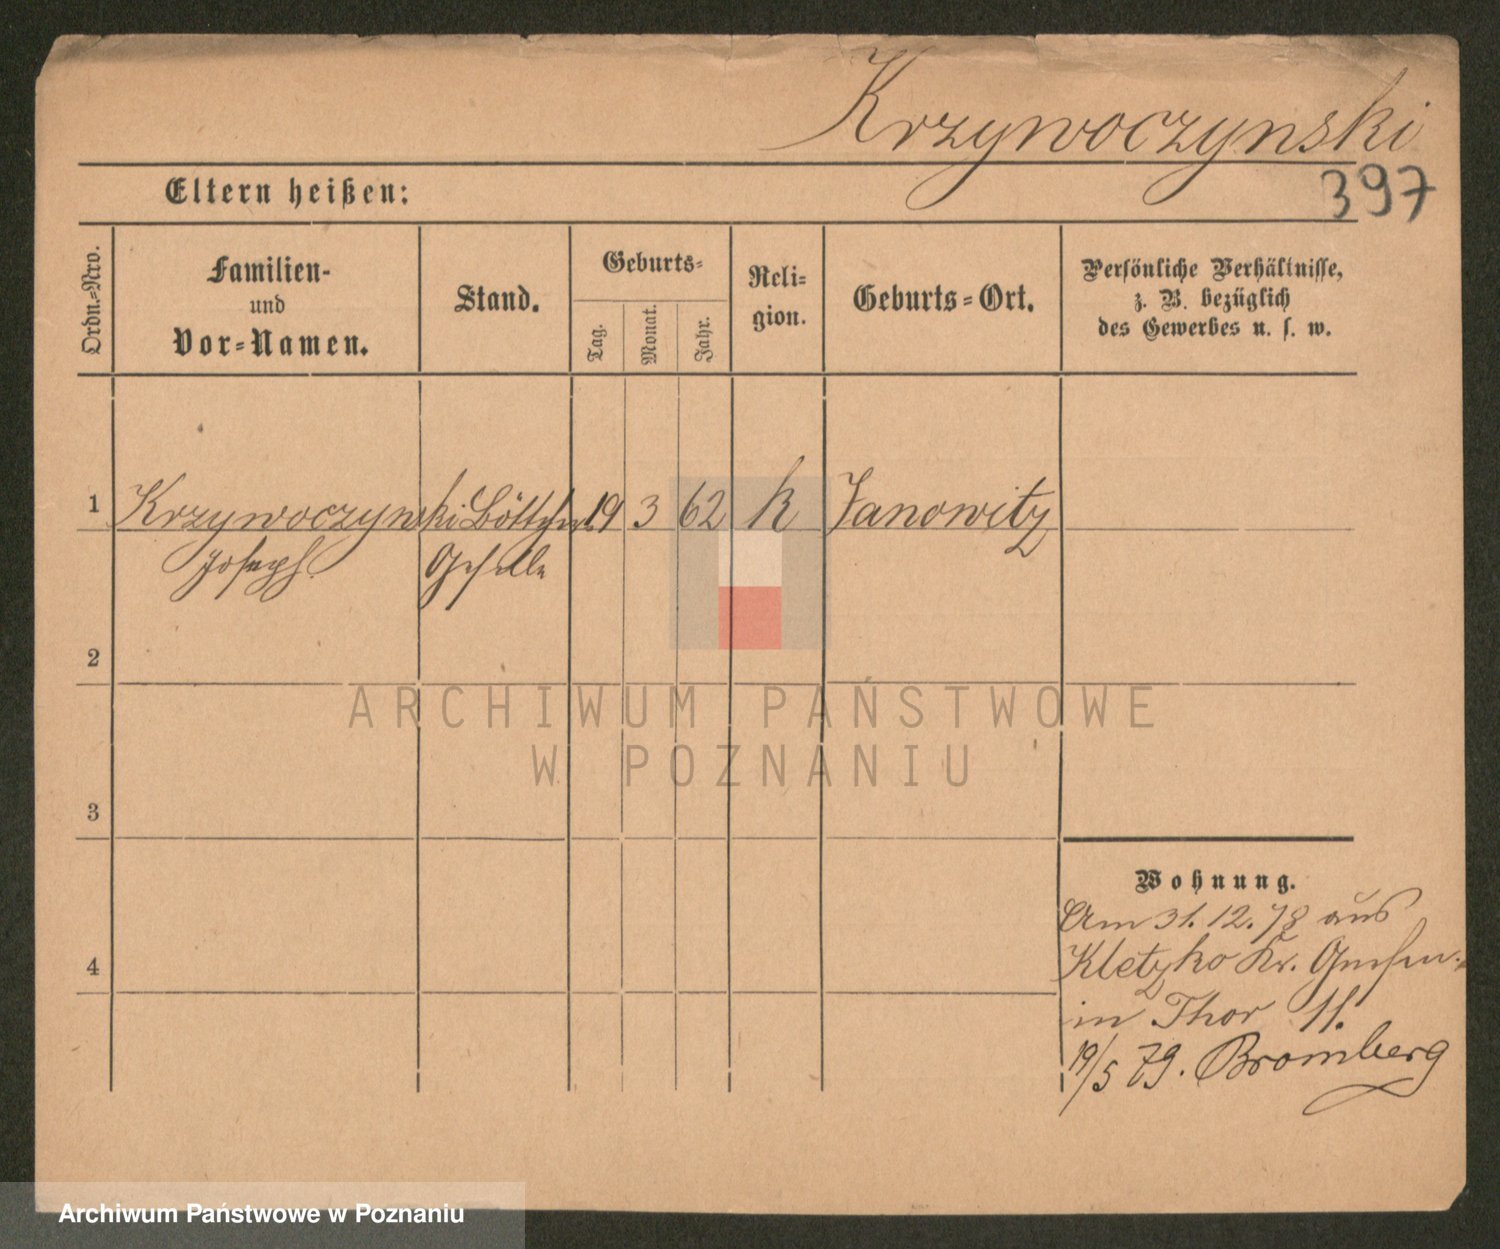 Krzywoczynski
397
Eltern heißen:
Ordn.=Nro.
Familien-
und
Vor=Namen.
Stand.
Geburts=
Tag.
Monat.
Jahr.
Reli=
gion.
Geburts=Ort.
Persönliche Verhältnisse,
z. B. bezüglich
des Gewerbes u. s. w.
1 Krzywoczynski Böttcher 19 3 62 k Janowitz
Joseph Geselle
2
3
4
Wohnung.
Am 31.12.78 aus
Kletzko Kr. Gnesen
in Thor 11.
19/5 79. Bromberg
ARCHIWUM PAŃSTWOWE
W POZNANIU
Archiwum Państwowe w Poznaniu